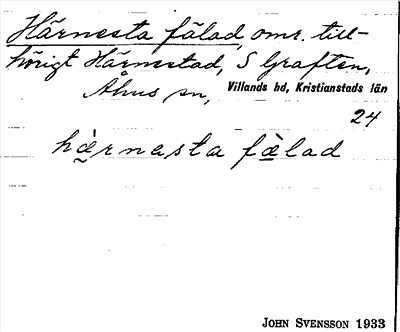 Härnesta fälad, omr. till-
hörigt Härnestad, S Graften,
Åhus sn, Villands hd, Kristianstads län
24
hä̀rnasta fä̀lad
JOHN SVENSSON 1933